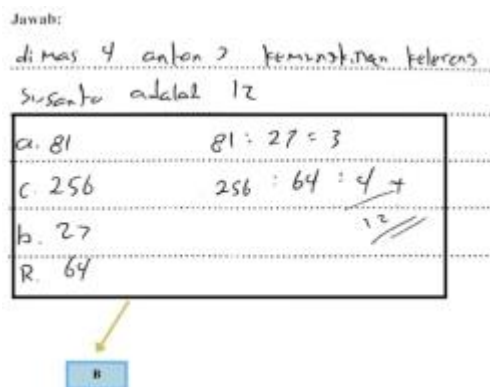 Jawab:
dimas 4 anton 3 kemungkinan kelereng
Susanto adalah 12
a. 81 81 : 27 = 3
c. 256 256 : 64 : 4 +
b. 27 12
R. 64
B